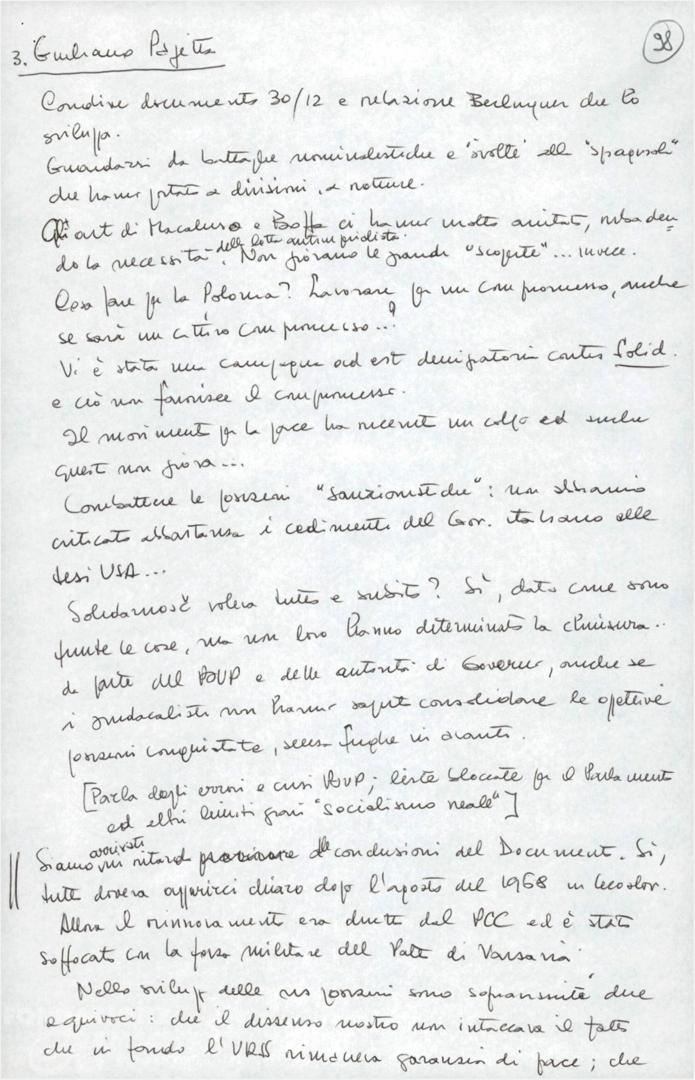 98
3. Giuliano Pajetta
Condive documento 30/12 e relazione Berlinguer che lo
sviluppa.
Guardarsi da battaglie nominalistiche e "svolte" alla "spagnola"
che hanno portato a divisioni, a rotture.
Gli art di Macaluso e Boffa ci hanno molto aiutati, ribaden
do la necessità della lotta antimperialista. Non giovano le grandi "scoperte"... invece.
Cosa fare per la Polonia? Lavorare per un compromesso, anche
se sarà un cattivo compromesso...
Vi è stata una campagna ad est denigratoria contro Solid.
e ciò non favorisce il compromesso.
Il movimento per la pace ha ricevuto un colpo ed anche
questo non giova...
Combattere le posizioni "sanzionistiche": non abbiamo
criticato abbastanza i cedimenti del Gov. italiano alle
tesi USA...
Solidarnosč voleva tutto e subito? Sì, dato come sono
giunte le cose, ma non loro hanno determinato la chiusura..
da parte del POUP e delle autorità di Governo, anche se
i sindacalisti non hanno saputo consolidare le oggettive
posizioni conquistate, senza fughe in avanti.
[Parla degli errori e crisi POUP; liste bloccate per il Parlamento
ed altri limiti gravi "socialismo reale"]
Siamo arrivati in ritardo alle conclusioni del Documento. Sì,
tutto doveva apparirci chiaro dopo l'agosto del 1968 in Cecoslov.
Allora il rinnovamento era diretto dal PCC ed è stato
soffocato con la forza militare del Patto di Varsavia.
Nello sviluppo delle ns posizioni sono sopravvissuti due
equivoci: che il dissenso nostro non intaccava il fatto
che in fondo l'URSS rimaneva garanzia di pace; che